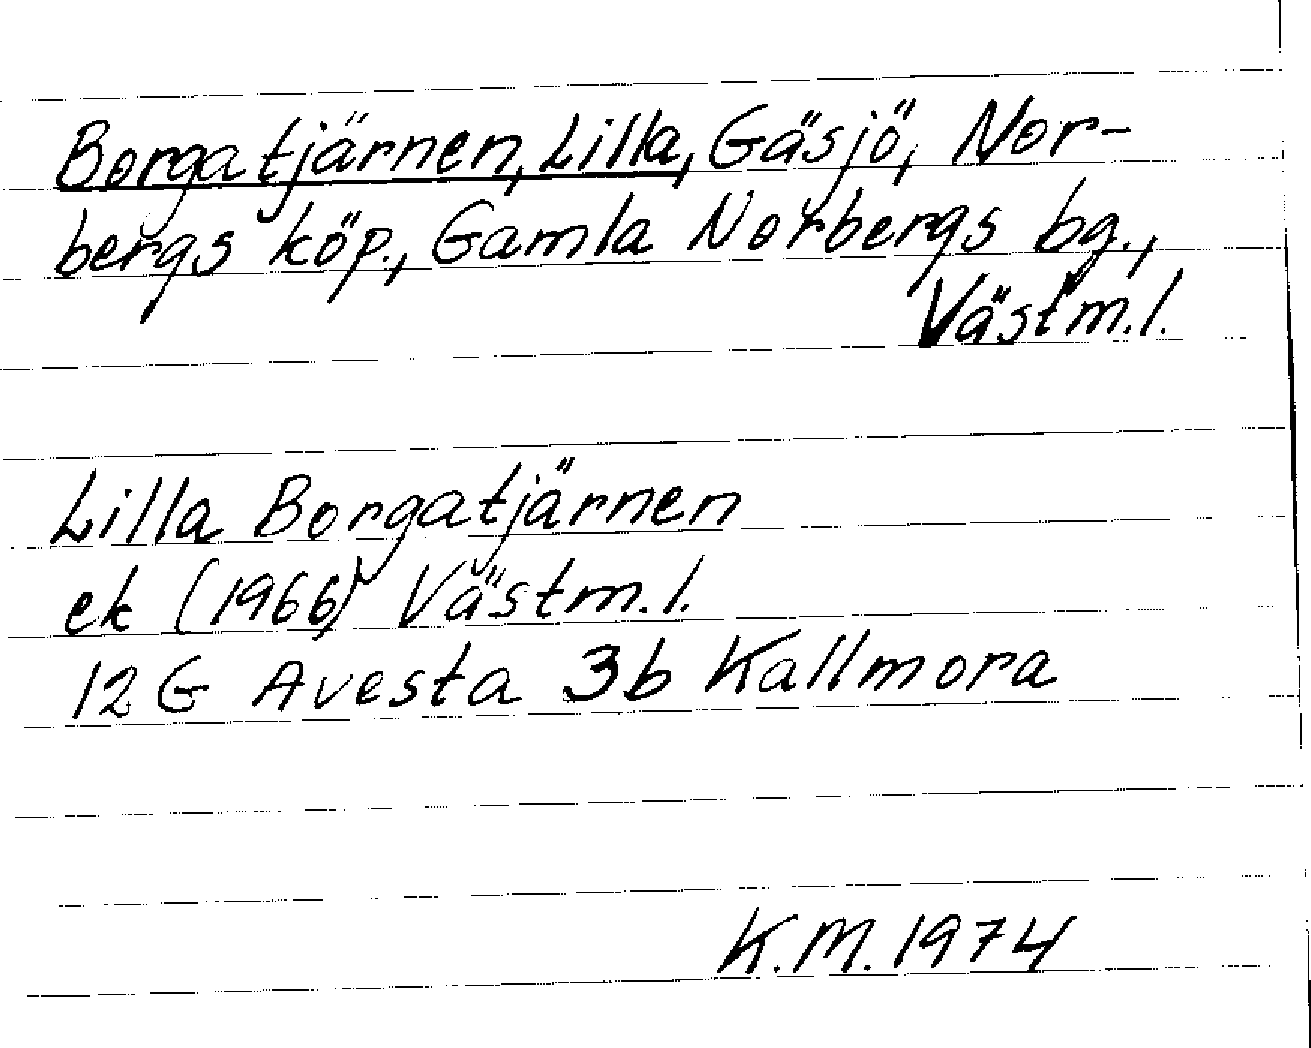 Borgatjärnen, Lilla, Gäsjö, Nor-
bergs köp., Gamla Norbergs bg.,
Västm.l.
Lilla Borgatjärnen
ek (1966) Västm.l.
12 G Avesta 3b Kallmora
K.M. 1974